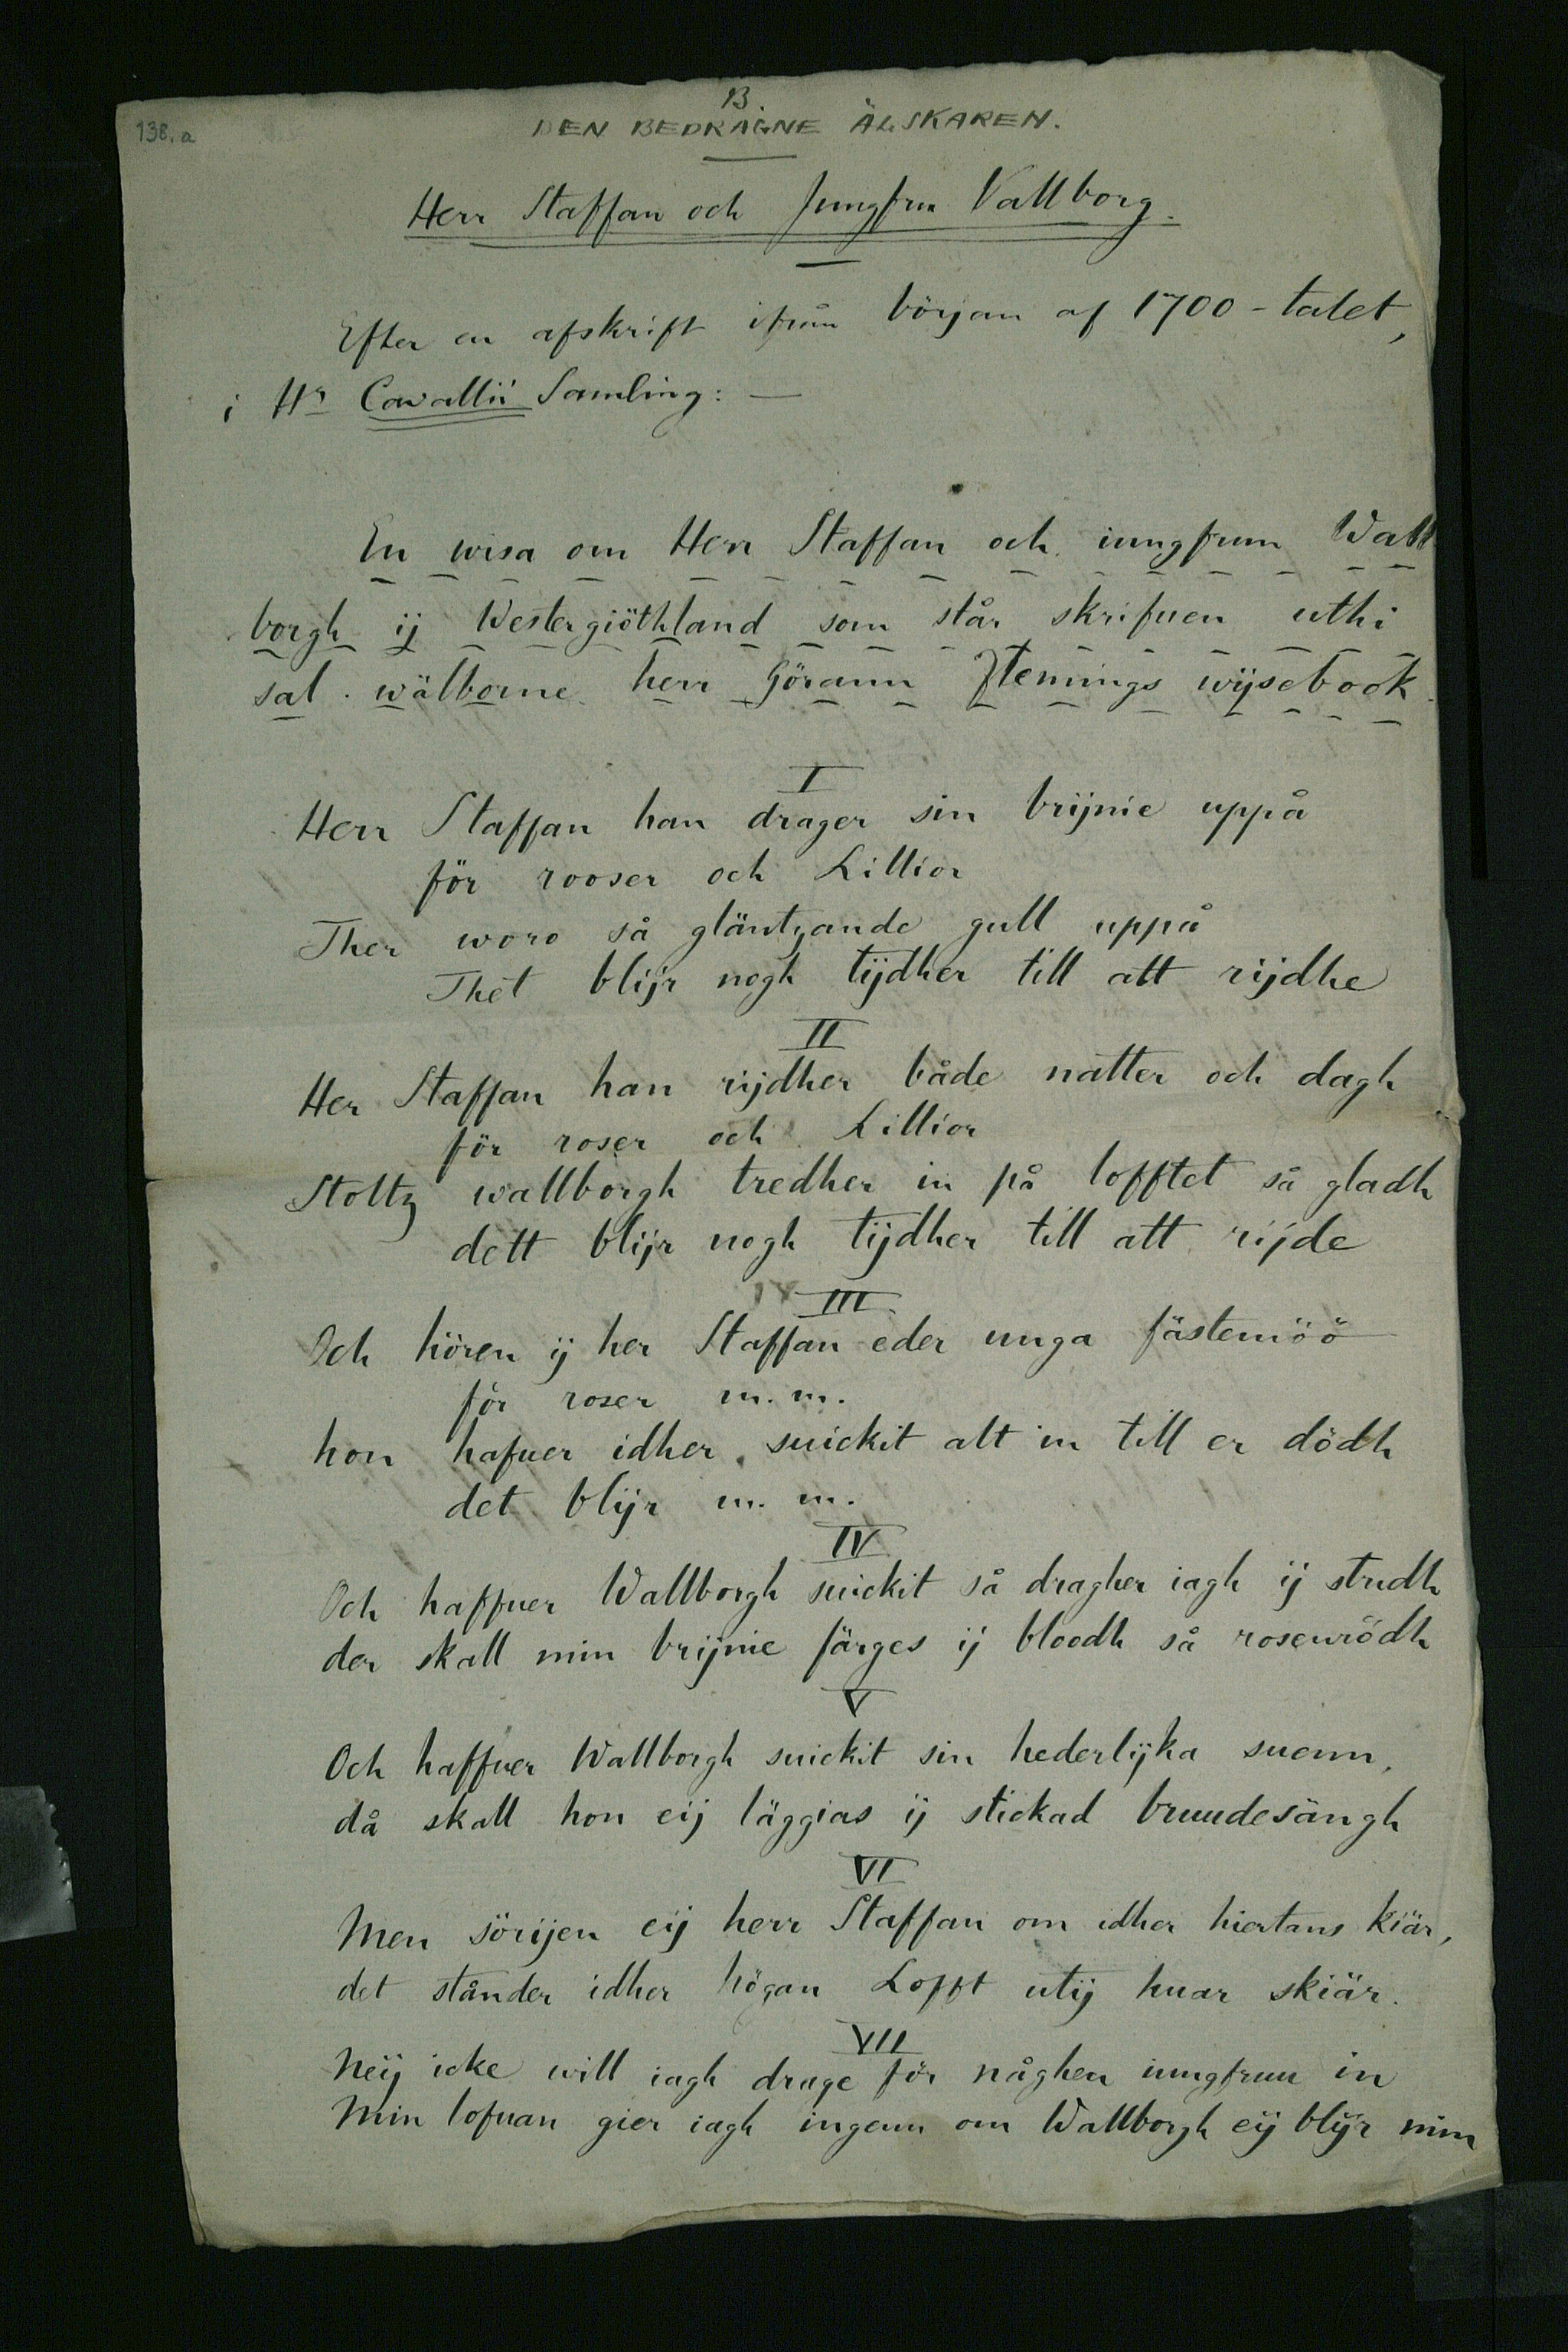 138.a
B.
DEN BEDRAGNE ÄLSKAREN.
Herr Staffan och Jungfru Vallborg.
Efter en afskrift ifrån början af 1700-talet,
i Hr Cavallii Samling: —
En wisa om Herr Staffan och iungfrun Wall
borgh ij Westergiöthland som står skrifuen uthi
sal. wälborne herr Görann Flemings wijsebook.
I
Herr Staffan han drager sin brijnie uppå
för rooser och Lillior
Ther woro så gläntzande gull uppå
Thet blijr nogh tijdher till att rijdhe
II
Her Staffan han rijdher både natter och dagh
för roser och Lillior
Stoltz wallborgh tredher in på lofftet så gladh
dett blijr nogh tijdher till att rijde
III
Och hören ij her Staffan eder unga fästemöö
för roser m.m.
hon hafuer idher suickit alt in till er dödh
det blijr m.m.
IV
Och haffuer Wallborgh suickit så dragher iagh ij stridh
der skall min brijnie färges ij bloodh så rosenrödh
V
Och haffuer Wallborgh suickit sin hederlijka suenn,
då skall hon eij läggias ij stickad bruudesängh
VI
Men sörijen eij herr Staffan om idher hiertans kiär,
det ständer idher högan Lofft utij huar skiär.
VII
Neij icke will iagh drage för någhen iungfruu in
Min lofuan gier iagh ingenn om Wallborgh eij blijr min